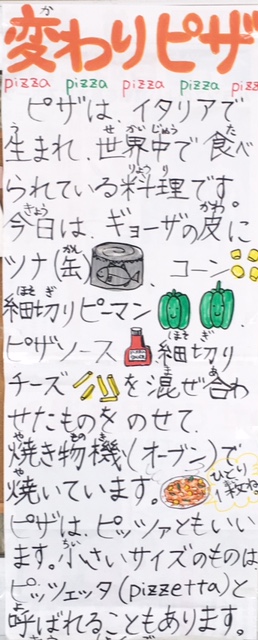 変わりピザ
pizza pizza pizza pizza pizz
ピザは、イタリアで
生まれ、世界中で食べ
られている料理です。
今日は、ギョーザの皮に
ツナ(缶)、コーン
細切りピーマン
ピザソース 細切り
チーズ を混ぜ合わ
せたものをのせて、
焼き物機(オーブン)で
焼いています。
ひとり
1枚ね
ピザは、ピッツァともいい
ます。小さいサイズのものは
ピッツェッタ(pizzetta)と
呼ばれることもあります。